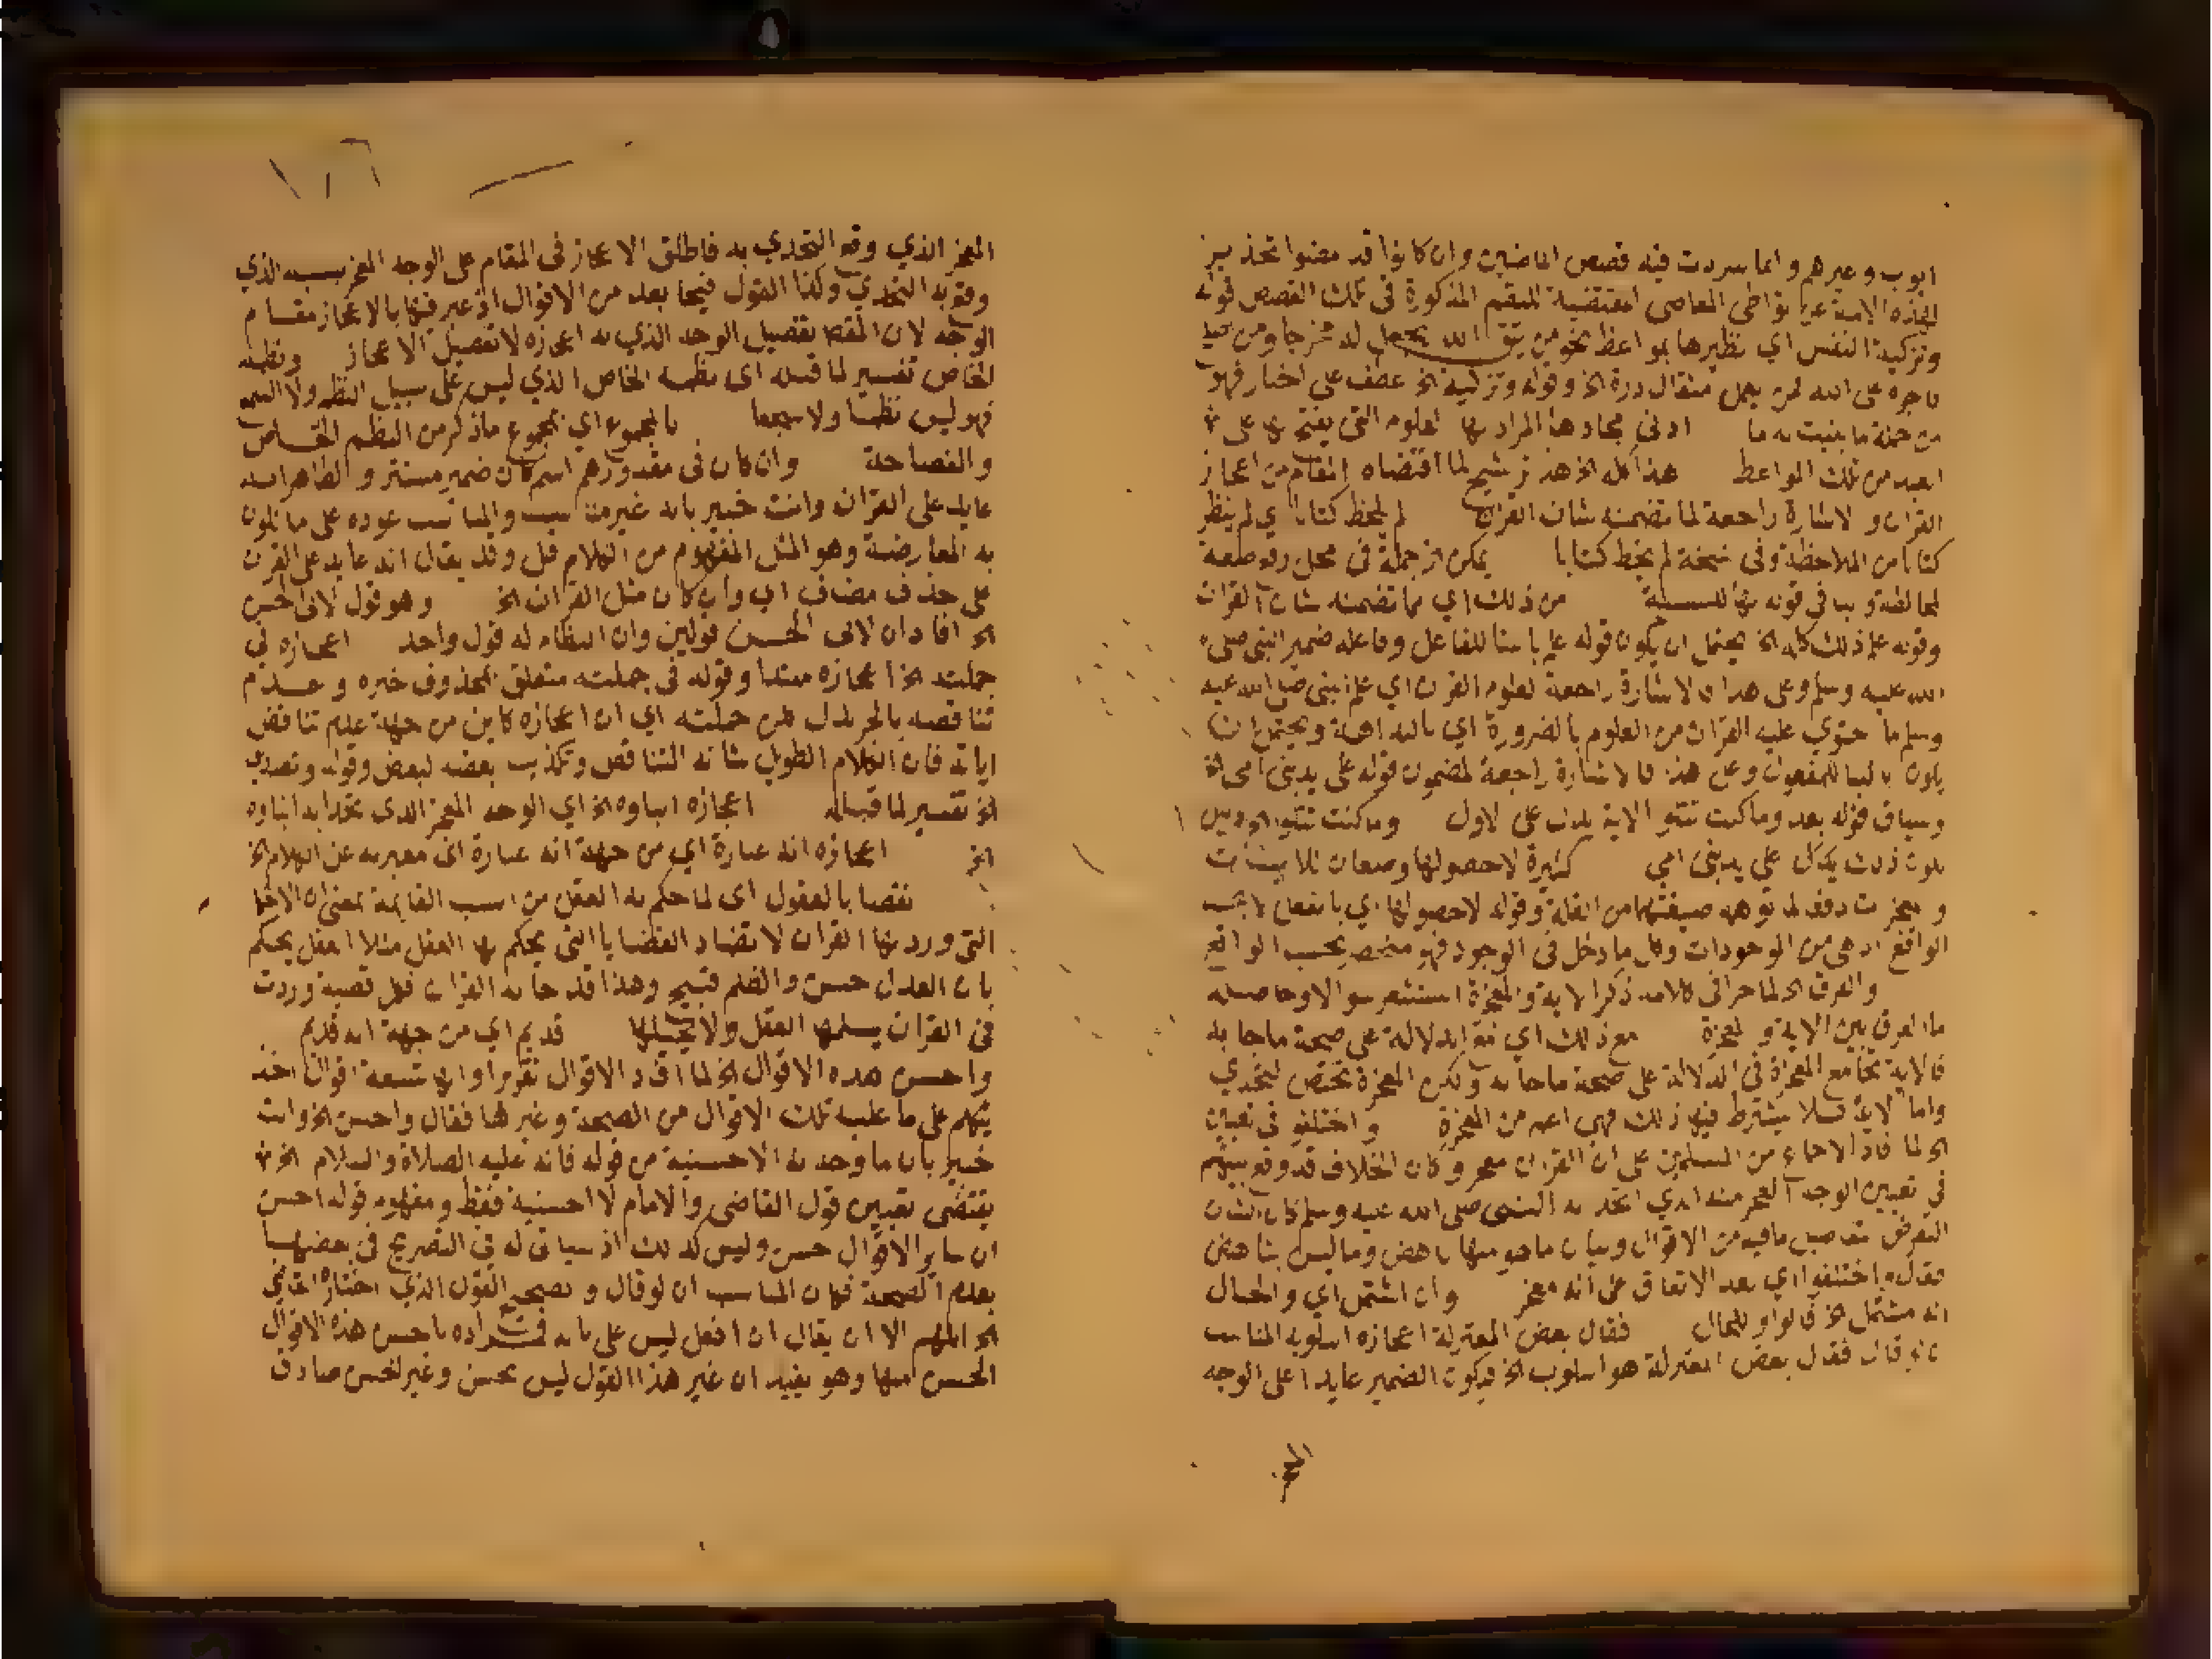 ايوب وغيرهم وانما سردت فيه قصص الماضين وان كانوا قد مضوا تحذير
لهذه الامة عن تواطى المعاصى المقتضية للنقم المذكورة فى تلك القصص قوله
وتزكية النفس اي تطهيرها بمواعظ نحو من يتق الله يجعل له مخرجا ومن
فاجره على الله فمن يعمل مثقال ذرة الخ وقوله وتزكية الخ عطف على اخبار فهو
من جملة ما بنيت به ما ادنى مجاد هذا المراد بها العلوم التى يفتح بها على
ابعد من تلك المواعظ هذا كله الخ هذا ترشيح لما اقتضاه المقام من اعجاز
القران والاشارة راجعة لما تضمنه شان القران لم يلحظ كتابا اي لم ينظر
كتابا من الملاحظة وفى نسخة لم يخط كتابا يمكن ان جملة فى محل رفع صفة
من ذلك اي مما تضمنه شان القران
وقوله علم ذلك كله الخ يحتمل ان يكون قوله علم بالبنا للفاعل وفاعله ضمير النبى صلى
الله عليه وسلم وعلى هذا فالاشارة راجعة لعلوم القران اي علم النبى صلى الله عليه
وسلم ما احتوي عليه القران من العلوم بالضرورة اي بالبداهة ويحتمل ان
يكون بالبنا للمفعول وعلى هذا فالاشارة راجعة لمضمون قوله على يد نبى امى الخ
وسياق قوله بعد وما كنت تتلو الاية يدل على الاول وما كنت تتلو الخ دليل
لكون ذلك على يد نبى امي كثيرة لاحصر لها وصفان للايات
والمعجزات دفع لما توهمه صيغتهما من القلة وقوله لاحصر لها اي بالفعل لا بحسب
الواقع اذ هى من الموجودات وكل ما دخل فى الوجود فهو منحصر بحسب الواقع
والفرق الخ لما جرا فى كلامه ذكر الاية والمعجزة استشعر سوالا وحاصله
ما الفرق بين الاية والمعجزة مع ذلك اي مع الدلالة على صحة ما جا به
فالاية تجامع المعجزة فى الدلالة على صحة ما جا به ولكن المعجزة تختص بالتحدي
واما الاية فلا يشترط فيها ذلك فهى اعم من المعجزة واختلفو فى تعيين
الخ لما افاد الاجماع من المسلمين على ان القران معجز وكان الخلاف قد وقع بينهم
فى تعيين الوجه المعجز منه الذي اتحد به النبى صلى الله عليه وسلم كان الشان
التعرض بتفاصيل ما فيه من الاقوال وبيان ما هو منها ناهض وما ليس بناهض
فقال واختلفوا اي بعد الاتفاق على انه معجز وان اشتمل اي والحال
انه مشتمل الخ فالواو للحال فقال بعض المعتزلة اعجازه اسلوبه المناسب
ان لو قال فقال بعض المعتزلة هو اسلوب الخ فيكون الضمير عايدا على الوجه
المعجز
المعجز الذي وقع التحدي به فاطلق الاعجاز فى المقام على الوجه المعجز بسببه الذي
وقع به التحدي وكذا القول فيما بعد من الاقوال اذ عبر فيها بالاعجاز مقام
الوجه لان المقصد تفصيل الوجه الذي به اعجازه لا تفصيل الاعجاز ونظمه
الخاص تفسير لما قبله اى نظمه الخاص الذي ليس على سبيل النظم ولا السجع
فهو ليس نظما ولا سجعا بالمجموع اي مجموع ما ذكر من النظم الخاص
والفصاحة وان كان فى مقدورهم اسم كان ضمير مستتر والظاهر انه
عايد على القران وانت خبير بانه غير مناسب والمناسب عوده على ما تكون
به المعارضة وهو المثل المفهوم من الكلام قبل وقد يقال انه عايد على القران
على حذف مضاف اي وان كان مثل القران الخ وهو قول لابى الحسن
الخ افاد ان لابى الحسن قولين وان النظام له قول واحد اعجازه فى
جملته الخ اعجازه مبتدا وقوله فى جملته متعلق بمحذوف خبره وعدم
تناقضه بالجر بدل من جملته اي ان اعجازه كاين من جهة عدم تناقض
اياته فان الكلام الطويل شانه التناقض وتكذيب بعضه لبعض وقوله وتصديق
الخ تفسير لما قبله اعجازه انباوه الخ اي الوجه المعجز الذى تحدا به انباوه
الخ اعجازه انه عبارة اي من جهة انه عبارة اى معبر به عن الكلام الخ
نقضا بالعقول اى لما حكم به العقل من النسب القايمة بمعنى ان الاخبار
التى ورد بها القران لا تضاد القضايا التى يحكم بها العقل مثلا العقل يحكم
بان العدل حسن والظلم قبيح وهذا قد جا به القران فكل قضية وردت
فى القران يسلمها العقل ولا يحيلها قديم اي من جهة انه قديم
واحسن هذه الاقوال الخ لما افاد الاقوال تقريرا وانها تسعة اقوال اخذ
يتكلم على ما عليه تلك الاقوال من الصحة وغيرها فقال واحسن الخ وانت
خبير بان ما وجه به الاحسنية من قوله فانه عليه الصلاة والسلام الخ
يقتضى تعيين قول القاضى والامام لا احسنية فقط ومفهوم قوله احسن
ان ساير الاقوال حسن وليس كذلك اذ سياتى له فى التصريح فى بعضها
بعدم الصحة فكان المناسب ان لو قال وصحيح القول الذي اختاره القاضي
الخ اللهم الا ان يقال ان افعل ليس على بابه فمراده باحسن هذه الاقوال
الحسن منها وهو يفيد ان غير هذا القول ليس بحسن وغير الحسن صادق